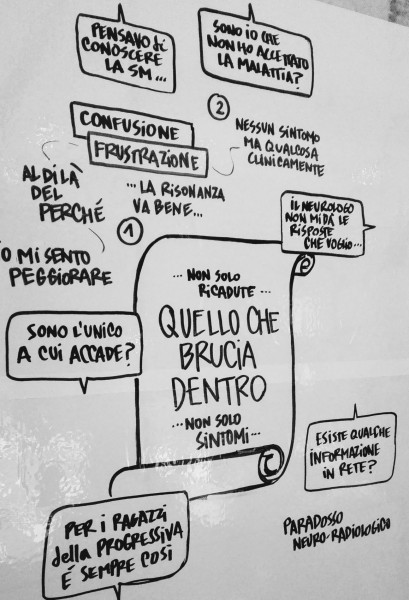 PENSAVO di
CONOSCERE
LA SM...
SONO IO CHE
NON HO ACCETTATO
LA MALATTIA?
2
CONFUSIONE
FRUSTRAZIONE
NESSUN SINTOMO
MA QUALCOSA
CLINICAMENTE
AL DI LÀ
DEL
PERCHÉ
...LA RISONANZA
VA BENE...
1
IL NEUROLOGO
NON MI DÀ LE
RISPOSTE
CHE VOGLIO...
O MI SENTO
PEGGIORARE
... NON SOLO
RICADUTE ...
QUELLO CHE
BRUCIA
DENTRO
...NON SOLO
SINTOMI...
SONO L'UNICO
A CUI ACCADE?
ESISTE QUALCHE
INFORMAZIONE
IN RETE?
PER i RAGAZZI
della PROGRESSIVA
É SEMPRE COSÌ
PARADOSSO
NEURO-RADIOLOGICO